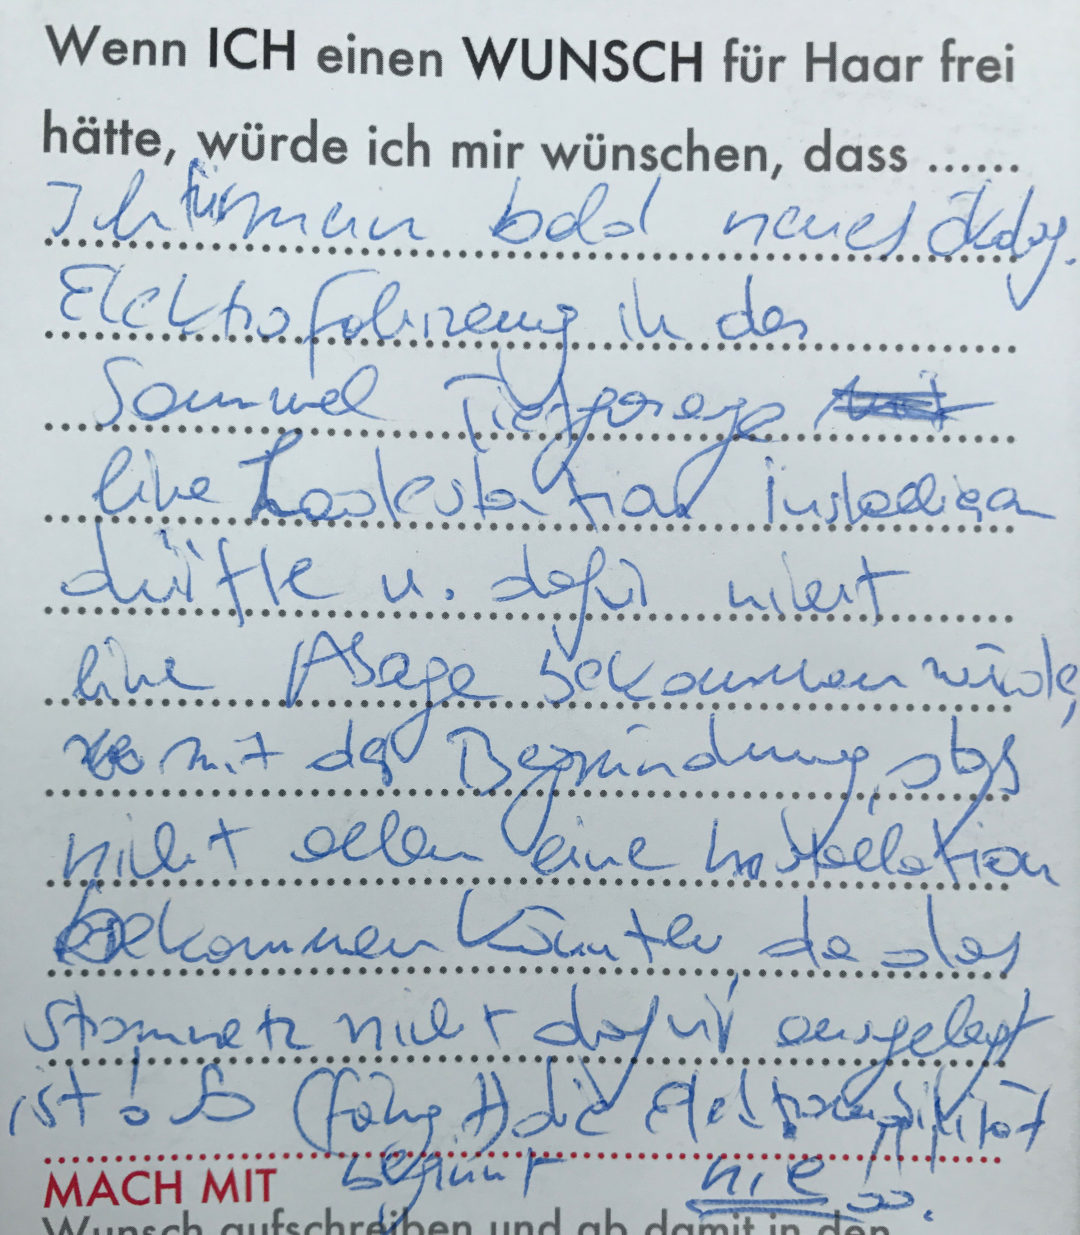 Wenn ICH einen WUNSCH für Haar frei
hätte, würde ich mir wünschen, dass ......
Ich für mein bald neues ökolog.
Elektrofahrzeug in der
Sammel Tiefgarage
eine Ladestation installieren
dürfte u. dafür nicht
eine Absage bekommen würde,
mit der Begründung, dass
nicht allen eine Installation
bekommen könnten da das
Stromnetz nicht dafür ausgelegt
ist! So (fängt) die
beginnt nie!!
MACH MIT
Wunsch aufschreiben und ab damit in den